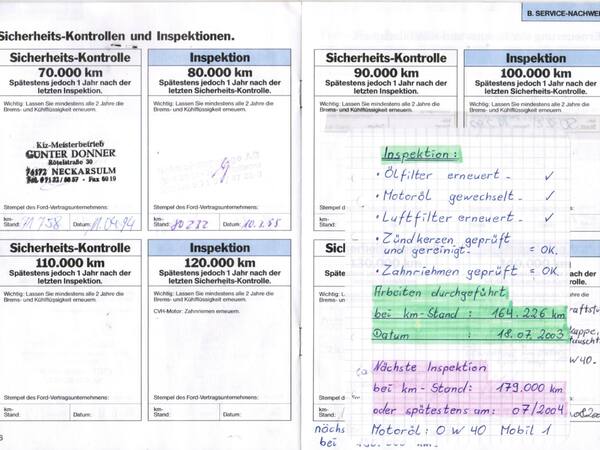 B. SERVICE-NACHWE
Sicherheits-Kontrollen und Inspektionen.
Sicherheits-Kontrolle
70.000 km
Spätestens jedoch 1 Jahr nach der
letzten Inspektion.
Wichtig: Lassen Sie mindestens alle 2 Jahre die
Brems- und Kühlflüssigkeit erneuern.
Kfz-Meisterbetrieb
GÜNTER DONNER
Rötelstraße 30
74172 NECKARSULM
Stempel des Ford-Vertragsunternehmens:
km-
Stand:
Datum: 11.04.94
Inspektion
80.000 km
Spätestens jedoch 1 Jahr nach der
letzten Sicherheits-Kontrolle.
Wichtig: Lassen Sie mindestens alle 2 Jahre die
Brems- und Kühlflüssigkeit erneuern.
Stempel des Ford-Vertragsunternehmens:
km-
Stand: 80232
Datum:
Sicherheits-Kontrolle
90.000 km
Spätestens jedoch 1 Jahr nach der
letzten Inspektion.
Wichtig: Lassen Sie mindestens alle 2 Jahre die
Brems- und Kühlflüssigkeit erneuern.
Stempel
km-
Stand:
Inspektion
100.000 km
Spätestens jedoch 1 Jahr nach der
letzten Sicherheits-Kontrolle.
Wichtig: Lassen Sie mindestens alle 2 Jahre die
Brems- und Kühlflüssigkeit erneuern.
Sicherheits-Kontrolle
110.000 km
Spätestens jedoch 1 Jahr nach der
letzten Inspektion.
Wichtig: Lassen Sie mindestens alle 2 Jahre die
Brems- und Kühlflüssigkeit erneuern.
Stempel des Ford-Vertragsunternehmens:
km-
Stand:
Datum:
Inspektion
120.000 km
Spätestens jedoch 1 Jahr nach der
letzten Sicherheits-Kontrolle.
Wichtig: Lassen Sie mindestens alle 2 Jahre die
Brems- und Kühlflüssigkeit erneuern.
CVH-Motor: Zahnriemen erneuern.
Stempel des Ford-Vertragsunternehmens:
km-
Stand:
Datum:
Inspektion:
• Ölfilter erneuert - ✓
• Motoröl gewechselt - ✓
• Luftfilter erneuert - ✓
• Zündkerzen geprüft
und gereinigt. = OK.
• Zahnriemen geprüft = OK.
Arbeiten durchgeführt
bei km-Stand: 164.226 km
Datum : 18.07.2003
Nächste Inspektion
bei km-Stand: 179.000 km
oder spätestens am: 07/2004
Motoröl: 0 W 40 Mobil 1
nach der
W 40-
bei